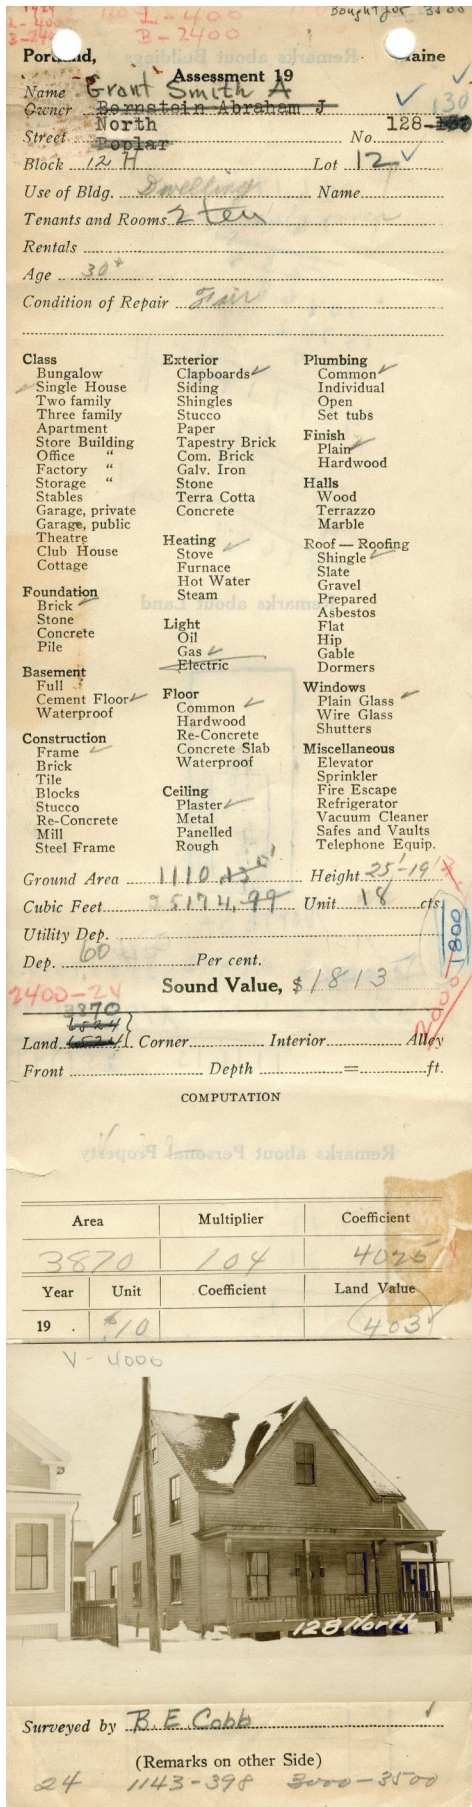 1924 L-400
L-400 B-2400
B-2400
Bought for 3500
Portland, Maine
Assessment 19
Name Grant Smith A
Owner Bernstein Abraham J 130
North 128-130
Street Poplar No.
Block 12 H Lot 12
Use of Bldg. Dwelling Name
Tenants and Rooms 2 ten
Rentals
Age 30+
Condition of Repair Fair
Class
Bungalow
Single House
Two family
Three family
Apartment
Store Building
Office "
Factory "
Storage "
Stables
Garage, private
Garage, public
Theatre
Club House
Cottage
Foundation
Brick
Stone
Concrete
Pile
Basement
Full
Cement Floor
Waterproof
Construction
Frame
Brick
Tile
Blocks
Stucco
Re-Concrete
Mill
Steel Frame
Exterior
Clapboards
Siding
Shingles
Stucco
Paper
Tapestry Brick
Com. Brick
Galv. Iron
Stone
Terra Cotta
Concrete
Heating
Stove
Furnace
Hot Water
Steam
Light
Oil
Gas
Electric
Floor
Common
Hardwood
Re-Concrete
Concrete Slab
Waterproof
Ceiling
Plaster
Metal
Panelled
Rough
Plumbing
Common
Individual
Open
Set tubs
Finish
Plain
Hardwood
Halls
Wood
Terrazzo
Marble
Roof — Roofing
Shingle
Slate
Gravel
Prepared
Asbestos
Flat
Hip
Gable
Dormers
Windows
Plain Glass
Wire Glass
Shutters
Miscellaneous
Elevator
Sprinkler
Fire Escape
Refrigerator
Vacuum Cleaner
Safes and Vaults
Telephone Equip.
Ground Area 1110 Height 25'-19'
Cubic Feet 25174.99 Unit 18 cts.
1800
Utility Dep.
Dep. 60 Per cent.
Sound Value, $1813
2400-24
2000
3870
6524
Land Corner Interior Alley
Front Depth = ft.
COMPUTATION
Remarks about Personal Property
Area Multiplier Coefficient
3870 104 4025
Year Unit Coefficient Land Value
19 . $.10 403
V-4000
128 North
Surveyed by B.E. Cobb
(Remarks on other Side)
24 1143-398 3000-3500